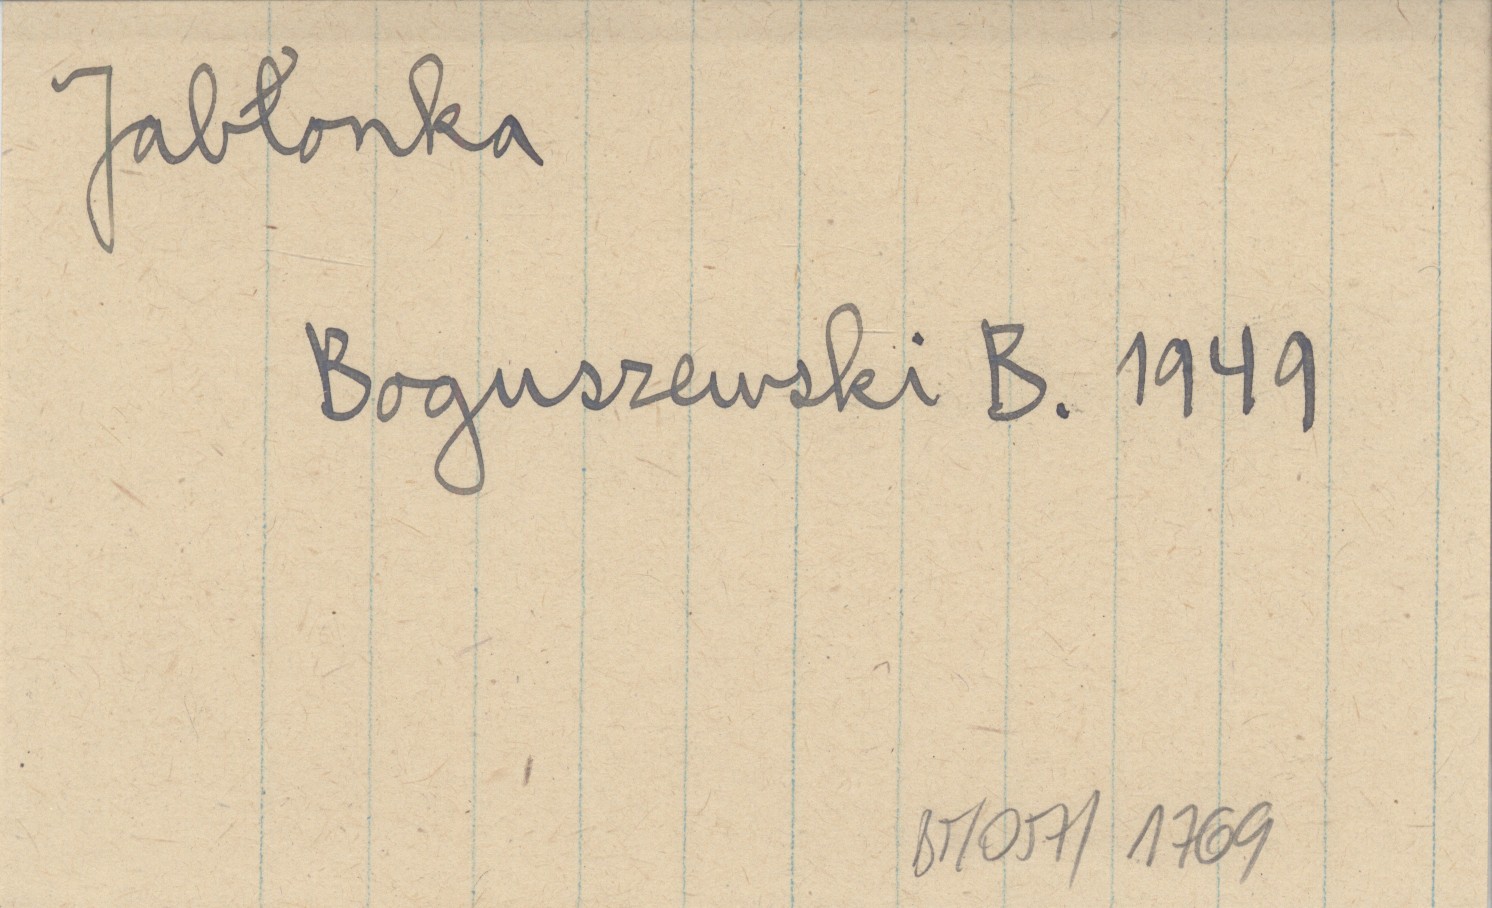 Jabłonka
Boguszewski B. 1949
1769